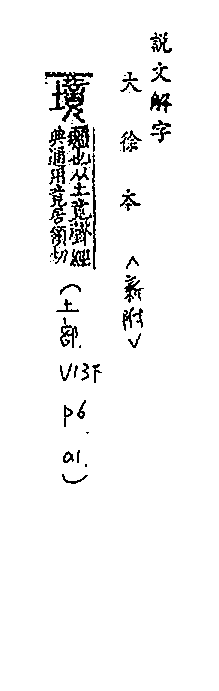 説文解字
大徐本<新附>
境
疆也从土竟聲經
典通用竟居領切
(土部.V13下
p6.
a1.)